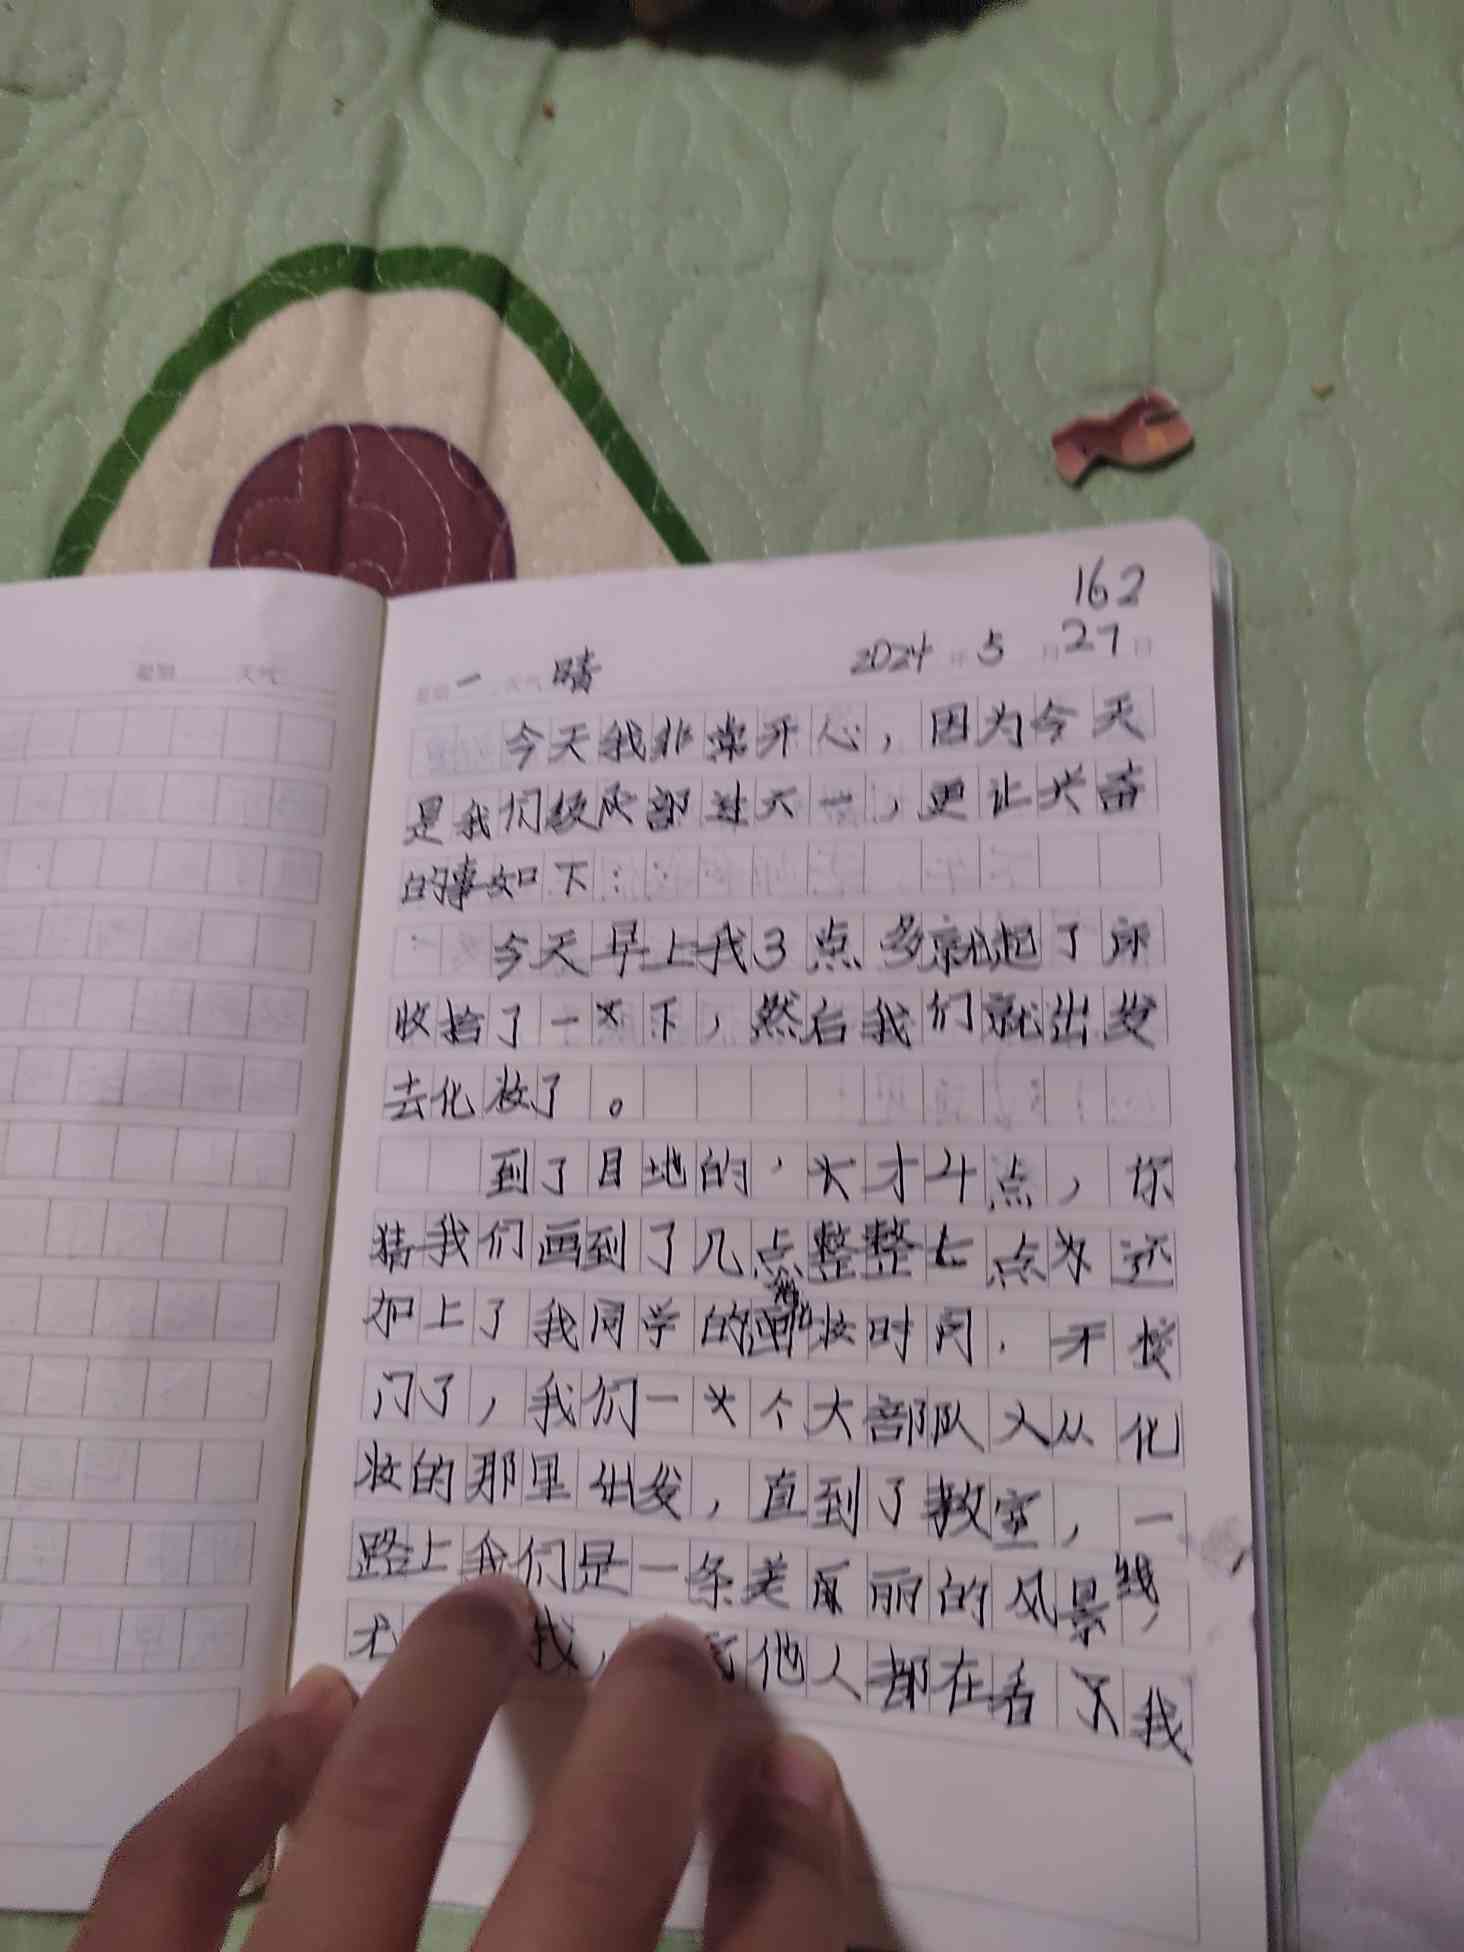 162
2024年5月27日
星期一 天气晴
今天我非常开心，因为今天
是我们级队部过六一，更让兴奋
的事如下：
今天早上我3点多就起了床
收拾了一下，然后我们就出发
去化妆了。
到了目地的，才4点，你
猜我们画到了几点整整七点还
加上了我同学的化妆时间，开校
门了，我们一个大部队从化
妆的那里出发，直到了教室，一
路上我们是一条美丽的风景线，
尤 我， 他人都在看 我
星期 天气